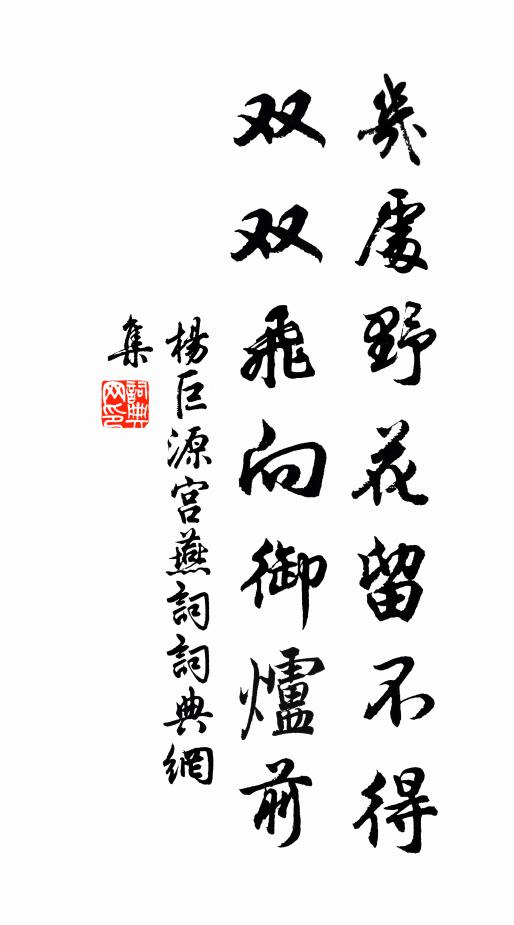 幾處野花留不得
双双飛向御爐前
楊巨源宮燕詞詞典網
集
詞典网印